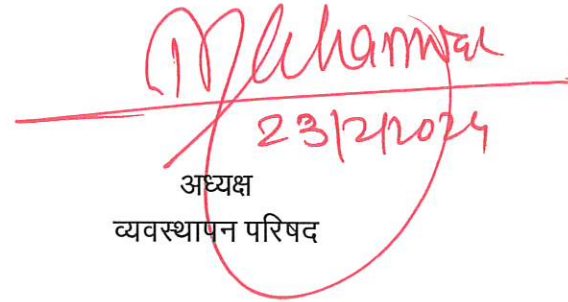 23/2/2024
अध्यक्ष
व्यवस्थापन परिषद